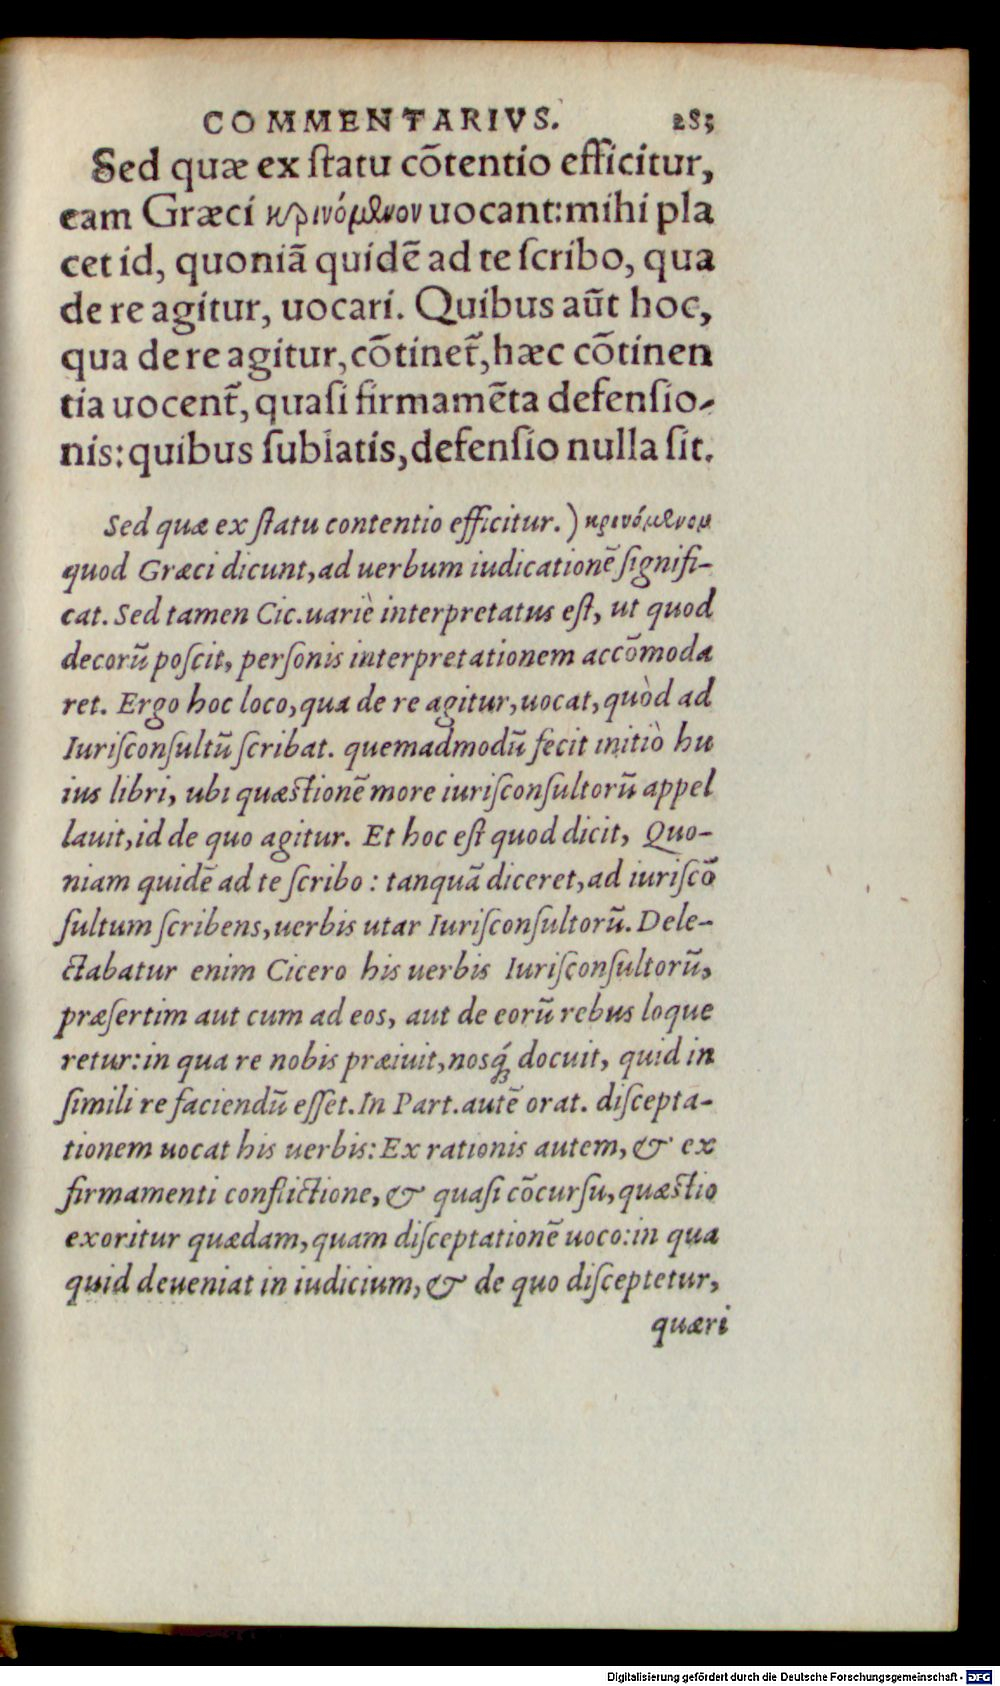 COMMENTARIVS. 285
Sed quæ ex ſtatu cõtentio efficitur,
eam Græci κρινόμενον uocant: mihi pla
cet id, quoniã quidẽ ad te ſcribo, qua
de re agitur, uocari. Quibus aũt hoc,
qua de re agitur, cõtinet᷑, hæc cõtinen
tia uocent᷑, quaſi firmamẽta defenſio-
nis: quibus ſublatis, defenſio nulla ſit.
Sed quæ ex ſtatu contentio efficitur.) κρινόμενον
quod Græci dicunt, ad uerbum iudicationẽ ſignifi-
cat. Sed tamen Cic. uariè interpretatus eſt, ut quod
decorũ poſcit, perſonis interpretationem accõmoda
ret. Ergo hoc loco, qua de re agitur, uocat, quòd ad
Iuriſconſultũ ſcribat. quemadmodũ fecit initiò hu
ius libri, ubi quæſtionẽ more iuriſconſultorũ appel
lauit, id de quo agitur. Et hoc eſt quod dicit, Quo-
niam quidẽ ad te ſcribo: tanquã diceret, ad iuriſcõ
ſultum ſcribens, uerbis utar Iuriſconſultorũ. Dele-
ctabatur enim Cicero his uerbis Iuriſconſultorũ,
præſertim aut cum ad eos, aut de eorũ rebus loque
retur: in qua re nobis præiuit, nosq́; docuit, quid in
ſimili re faciendũ eſſet. In Part. autẽ orat. diſcepta-
tionem uocat his uerbis: Ex rationis autem, & ex
firmamenti conflictione, & quaſi cõcurſu, quæſtio
exoritur quædam, quam diſceptationẽ uoco: in qua
quid deueniat in iudicium, & de quo diſceptetur,
quæri
Digitalisierung gefördert durch die Deutsche Forschungsgemeinschaft - DFG